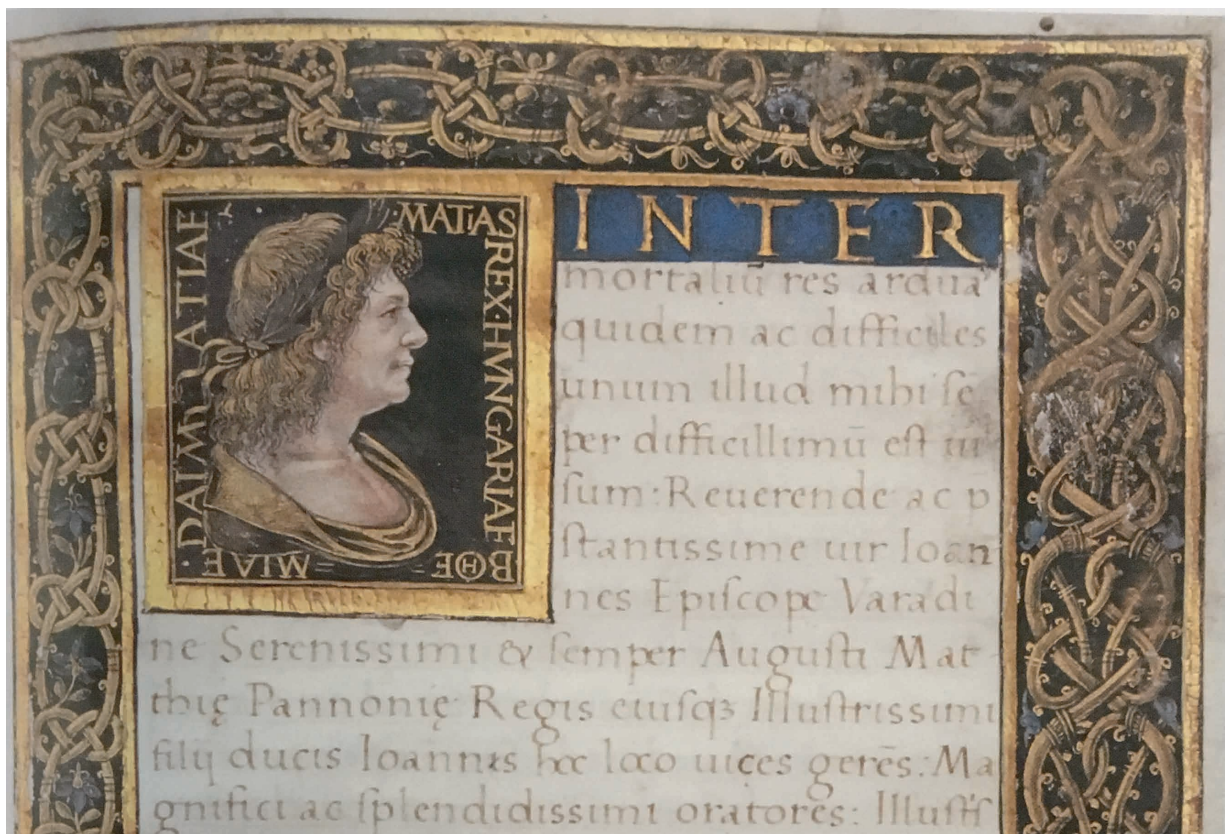 MATIAS
REX·HVNGARIAE
BOE
MIAE
DALM ATIAE
INTER
mortaliū res ardua
quidem ac difficiles
unum illud mihi sē
per difficillimū est
sum: Reuerende ac p̄
stantissime uir Ioan
nes Episcope Varadi
ne Serenissimi & semper Augusti Mat
thię Pannonię Regis eiusqꝫ Illustrissimi
filij ducis Ioannis hoc loco uices gerēs: Ma
gnifici ac splendidissimi oratores: Illust